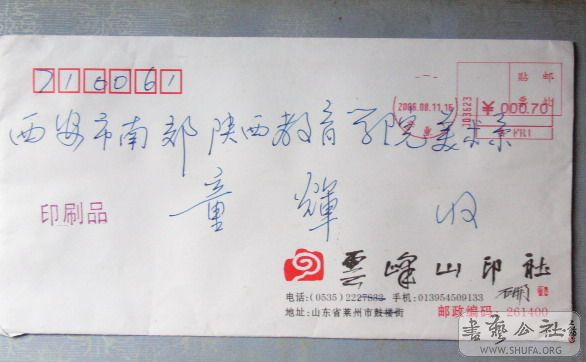 710061
邮
贴
2006.08.11.16
103623
000.70
PR1
西安市南郊陕西教育学院美术系
童辉 收
印刷品
雲峰山印社
电话:(0535) 2227833 手机:013954509133
地址:山东省莱州市鼓楼街
邮政编码 261400
書藝公社
WWW.SHUFA.ORG